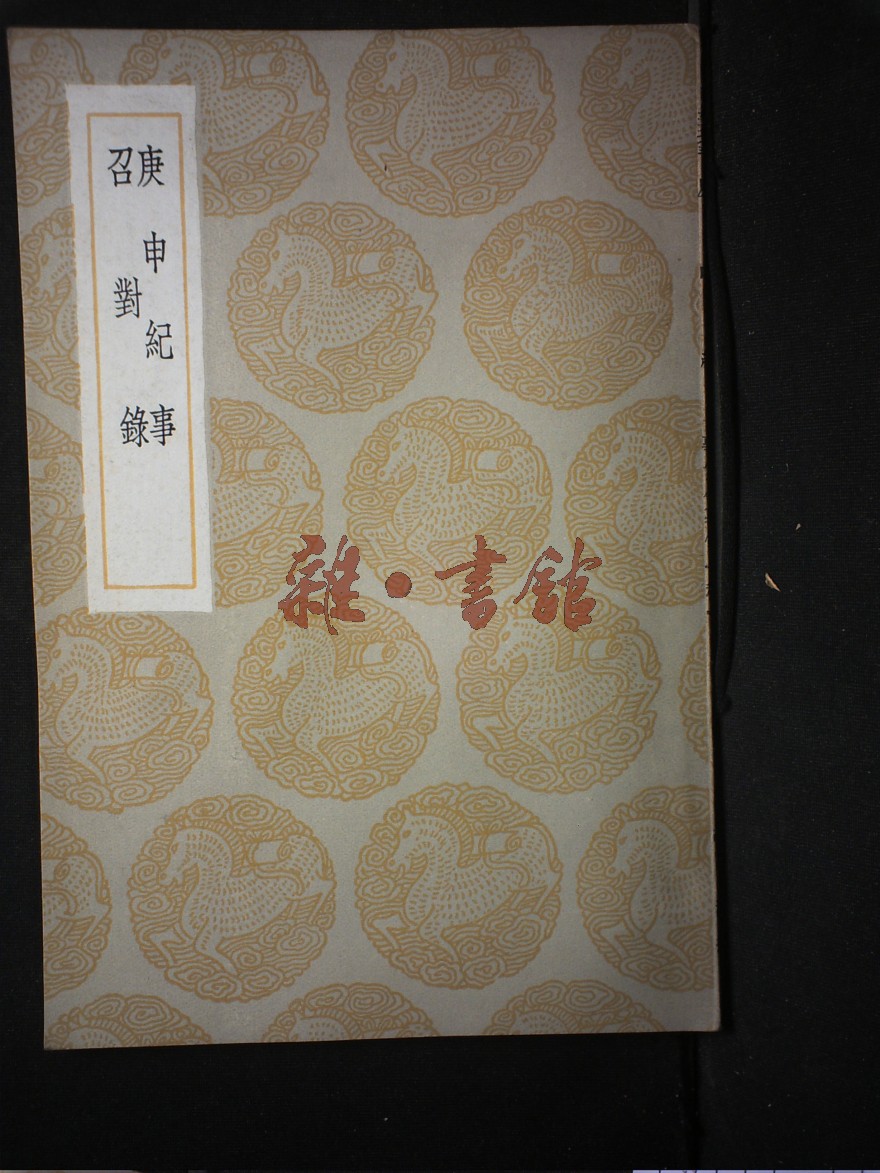 庚申紀事
召對錄
雜·書館